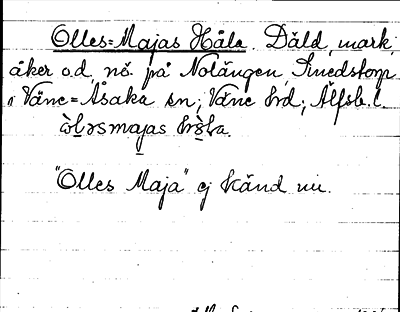 Olles-Majas Håla. Däld, mark,
åker o.d. nö. på Nolängen, Smedstorp
i Väne-Åsaka sn, Väne hd, Älfsb. l.
"Olles Maja" ej känd nu.